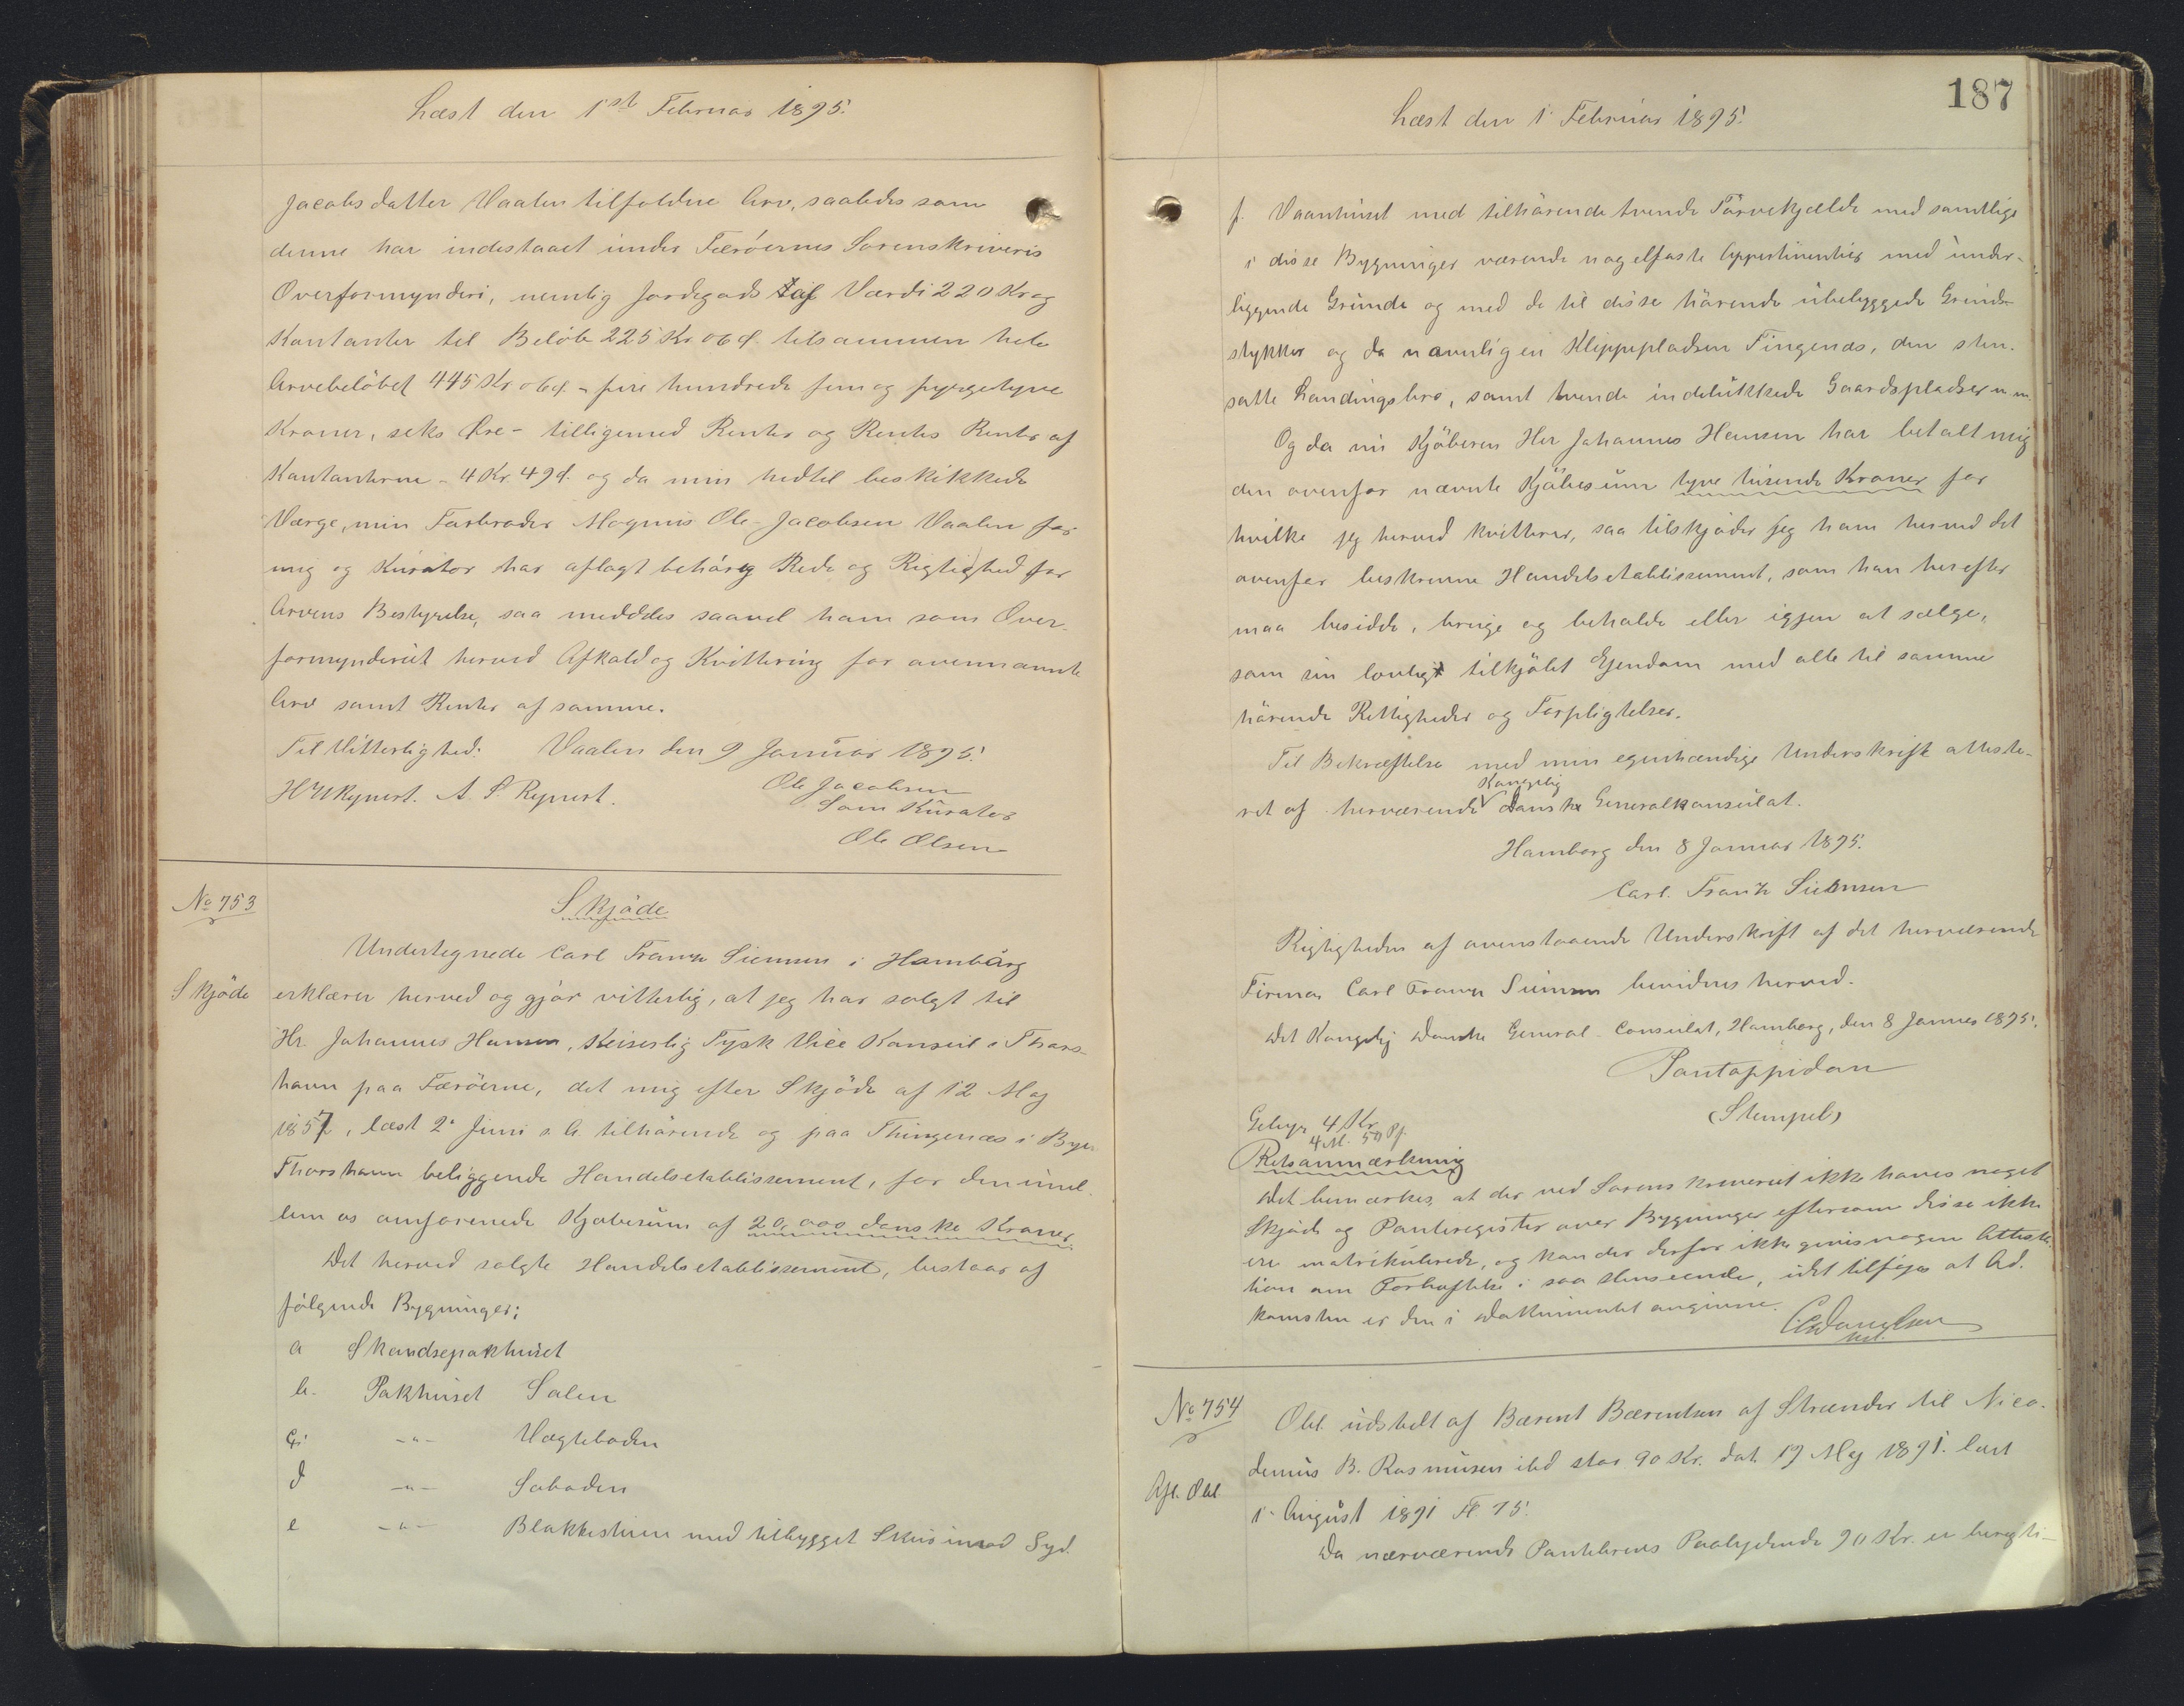 Læst den 1st Februar 1895.
Jacobsdatter Vaalen tilfaldne Arv, saaledes som
denne har indestaaet under Færöernes Sorenskriveris
Overformynderi, nemlig Jordegods af Værdi 220 Kr og
Kontanter til Beløb 225 Kr 06 d. tilsammen hele
Arvebeløbet 445 Kr. 06 d. - fire hundrede fem og fyrgetyve
Kroner, seks Øre - tilligemed Renter og Rentes Renter af
Kontanterne - 4 Kr. 49 d. og da min hidtil beskikkede
Værge, min Farbroder Magnus Ole-Jacobsen Vaalen for
mig og Kurator har aflagt behörig Rede og Rigtighed for
Arvens Bestyrelse, saa meddeles saavel ham som Over-
formynderiet herved Afkald og Kvittering for ovennævnte
Arv samt Renter af samme.
Til Vitterlighed. Vaalen den 9 Januar 1895.
H N Rypert. A. S. Rypert. Ole Jacobsen
Som Kurator
Ole Olsen
No 753
Skjöde
Skjöde
Undertegnede Carl Franz Siemsen i Hamburg
erklærer herved og gjör vitterlig, at jeg har solgt til
Hr. Johannes Hansen, Keiserlig Tysk Vice Konsul i Thors-
havn paa Færöerne, det mig efter Skjöde af 12 Maj
1857, læst 2. Juni s. A. tilhörende og paa Thingenæs i Byen
Thorshavn beliggende Handelsetablissement, for den imel-
lem os omforenede Kjøbesum af 20,000 danske Kroner.
Det herved solgte Handelsetablissement, bestaar af
fölgende Bygninger:
a Skandsepakhuset
b. Pakhuset Salen
c. -"- Vægteboden
d -"- Soboden
e -"- Blakkestuen med tilbygget Skur imod Syd.
187
Læst den 1 Februar 1895.
f. Vaanhuset med tilhörende tvende Törvekjælde med samtlige
i disse Bygninger værende nagelfaste Appertinentier med under-
liggende Grunde og med de til disse hörende ubebyggede Grund-
stykker og da navnligen Klippepladsen Tingenæs, den sten-
satte Landingsbro, samt tvende indelukkede Gaardspladser m.m.
Og da nu Kjöberen Herr Johannes Hansen har betalt mig
den ovenfor nævnte Kjöbesum tyve tusende Kroner for
hvilke jeg herved kvitterer, saa tilskjöder jeg ham herved det
ovenfor beskrevne Handelsetablissement, som han herefter
maa besidde, bruge og beholde eller igjen at sælge,
som sin lovligt tilkjöbt Ejendom med alle til samme
hörende Rettigheder og Forpligtelser.
Til Bekræftelse med min egenhændige Underskrift atteste-
Kongelig
ret af herværende danske Generalkonsulat.
Hamborg den 8 Januar 1895.
Carl. Franz Siemsen
Rigtigheden af ovenstaaende Underskrift af det herværende
Firma Carl Franz Siemsen bevidnes herved.
Det Kongelig Danske General-Consulat, Hamborg, den 8 Januar 1895.
Pontoppidan
(Stempel)
Gebyr 4 Kr
4 M. 50 Pf.
Retsanmærkning
Det bemærkes, at der ved Sorenskriveriet ikke haves noget
Skjöde og Panteregister over Bygninger eftersom disse ikke
ere matrikulerede, og kan der derfor ikke gives nogen Attesta-
tion om Forhæftelse i saa Henseende, idet tilföjes at Ad-
komsten er den i Dokumentet angivne.
C. Danielsen
kst.
No 754
Afl. Obl.
Obl. udstedt af Bærent Bærentsen af Strænder til Nico-
demus B. Rasmusen ibd stor 90 Kr. dat. 19 Maj 1891. læst
1. August 1891 N. 15.
Da nærværende Pantebrevs Paalydende 90 Kr. er berigti-